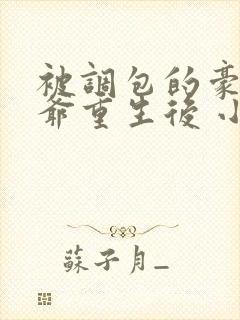 被調包的豪
爺重生後 小
蘇子月_